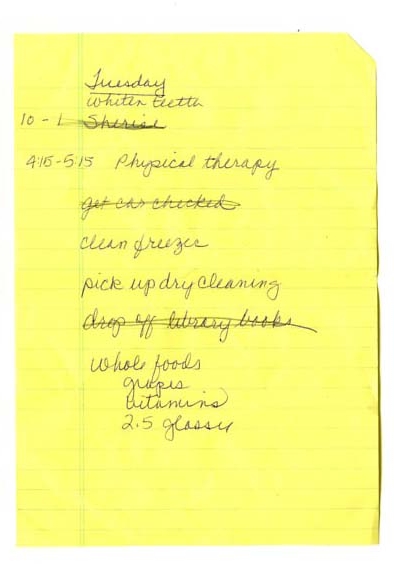 Tuesday
whiten teeth
10 - 1 Sherise
4:15-5:15 Physical therapy
get car checked
clean freezer
pick up dry cleaning
drop off library books
whole foods
grapes
vitamins
2.5 glasses